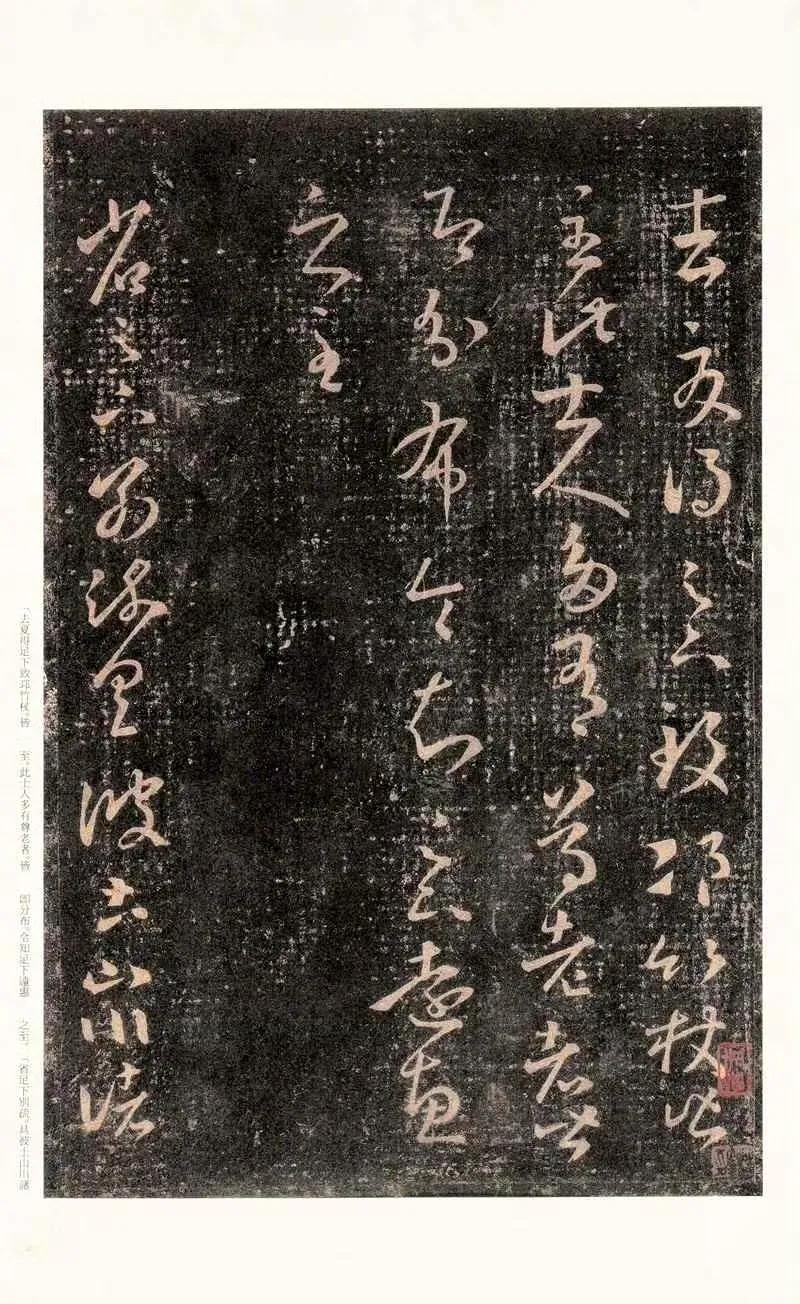 去夏得足下致邛竹杖皆
至此士人多有尊老者皆
即分布令知足下遠惠
之至
省足下別疏具彼土山川諸
「去夏得足下致邛竹杖。皆
至。此士人多有尊老者。皆
即分布。令知足下遠惠
之至。
「省足下別疏。具彼土山川諸